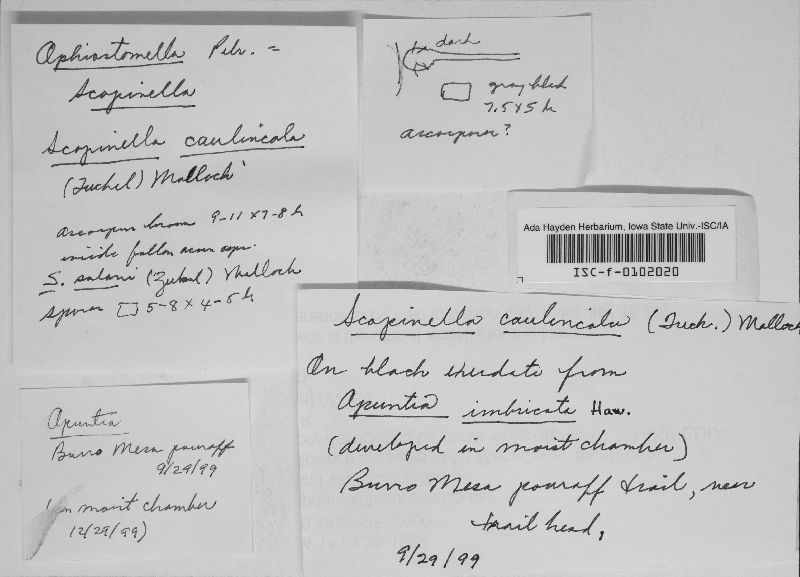 Ophiostomella Petr. =
Scopinella
Scopinella caulincola
(Fuckel) Malloch
ascospores brown 9-11 x 7-8 µ
inside fallen
S. solani (Zukal) Malloch
spores 5-8 x 4-5 µ
dark
gray black
7.5 x 5 µ
ascospores?
Ada Hayden Herbarium, Iowa State Univ.-ISC/IA
ISC-f-0102020
Scopinella caulincola (Fuck.) Malloch
On black exudate from
Opuntia imbricata Haw.
(developed in moist chamber)
Burro Mesa pouroff trail, near
trail head,
9/29/99
Opuntia
Burro Mesa pouroff
9/29/99
(in moist chamber
12/29/99)